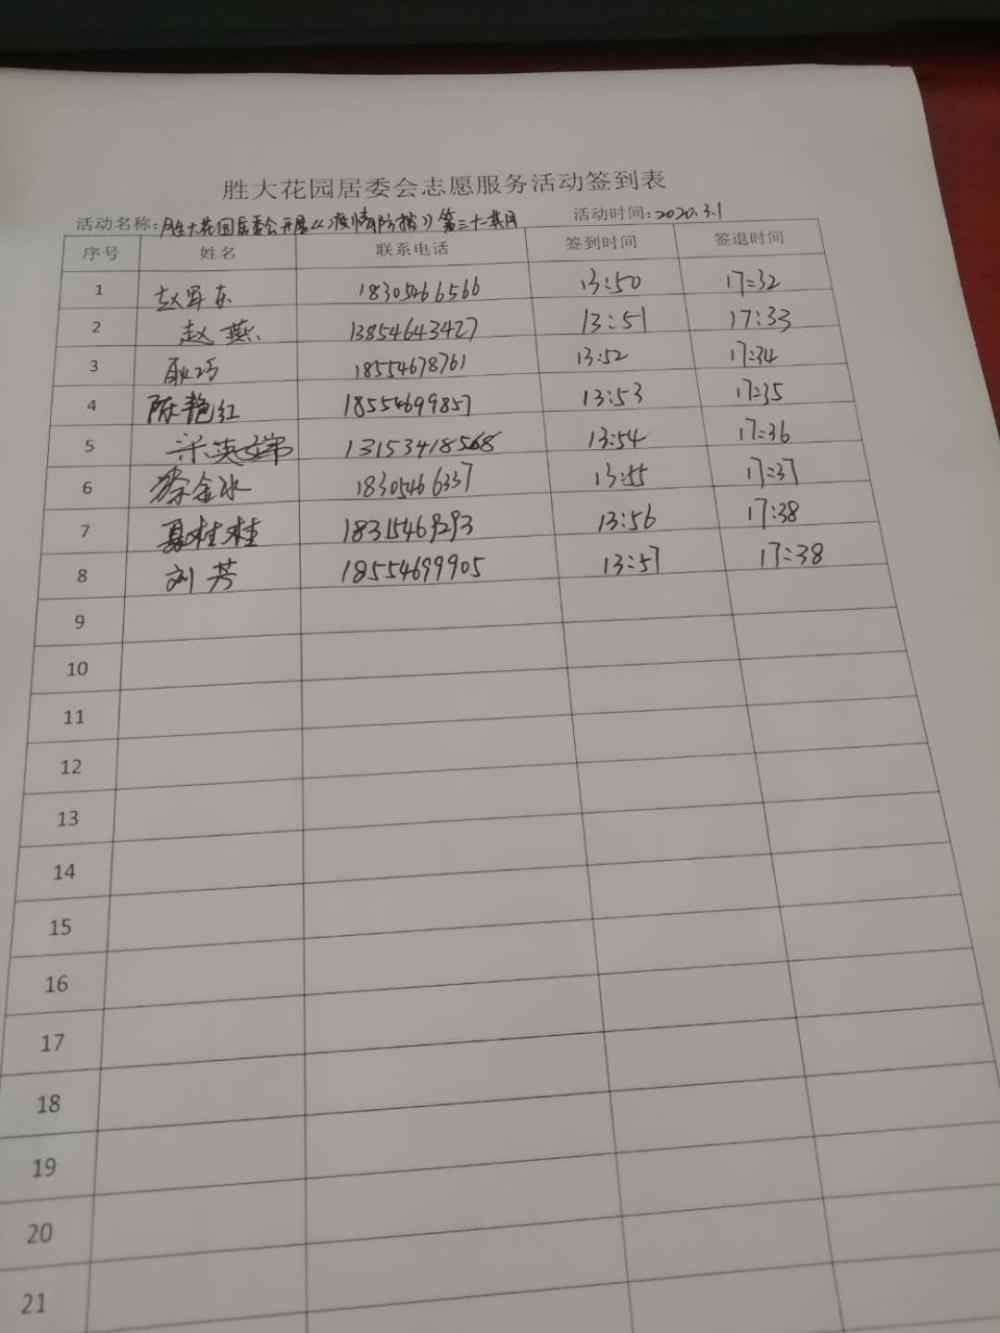 胜大花园居委会志愿服务活动签到表
活动名称:胜大花园居委会开展《疫情防控》第三十一期 活动时间:2020.3.1
序号 姓名 联系电话 签到时间 签退时间
1 赵军东 18305466566 13:50 17:32
2 赵燕 13854643427 13:51 17:33
3 耿巧 18554678761 13:52 17:34
4 陈艳红 18554699857 13:53 17:35
5 13153418568 13:54 17:36
6 蔡金冰 18305466337 13:55 17:37
7 夏桂桂 18315469293 13:56 17:38
8 刘芳 18554699905 13:57 17:38
9
10
11
12
13
14
15
16
17
18
19
20
21